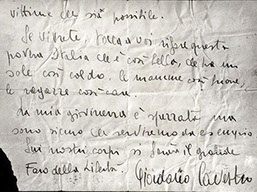 vittime che sia possibile.
Se vivrete, tocca a voi rifare questa
povera Italia che è così bella, che ha un
sole così caldo, le mamme così buone,
le ragazze così care.
La mia giovinezza è spezzata ma
sono sicuro che servirà da esempio
Sui nostri corpi si farà il grande
Faro della Libertà.
Giordano Cavestro